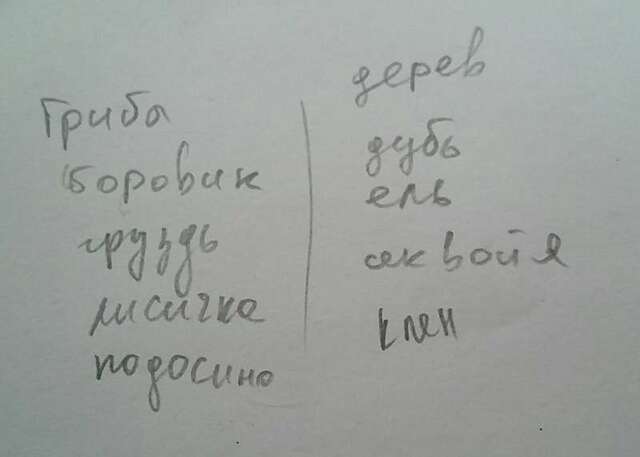 Гриба
боровик
груздь
лисичка
подосино
дерев
дубь
ель
секвойя
клен